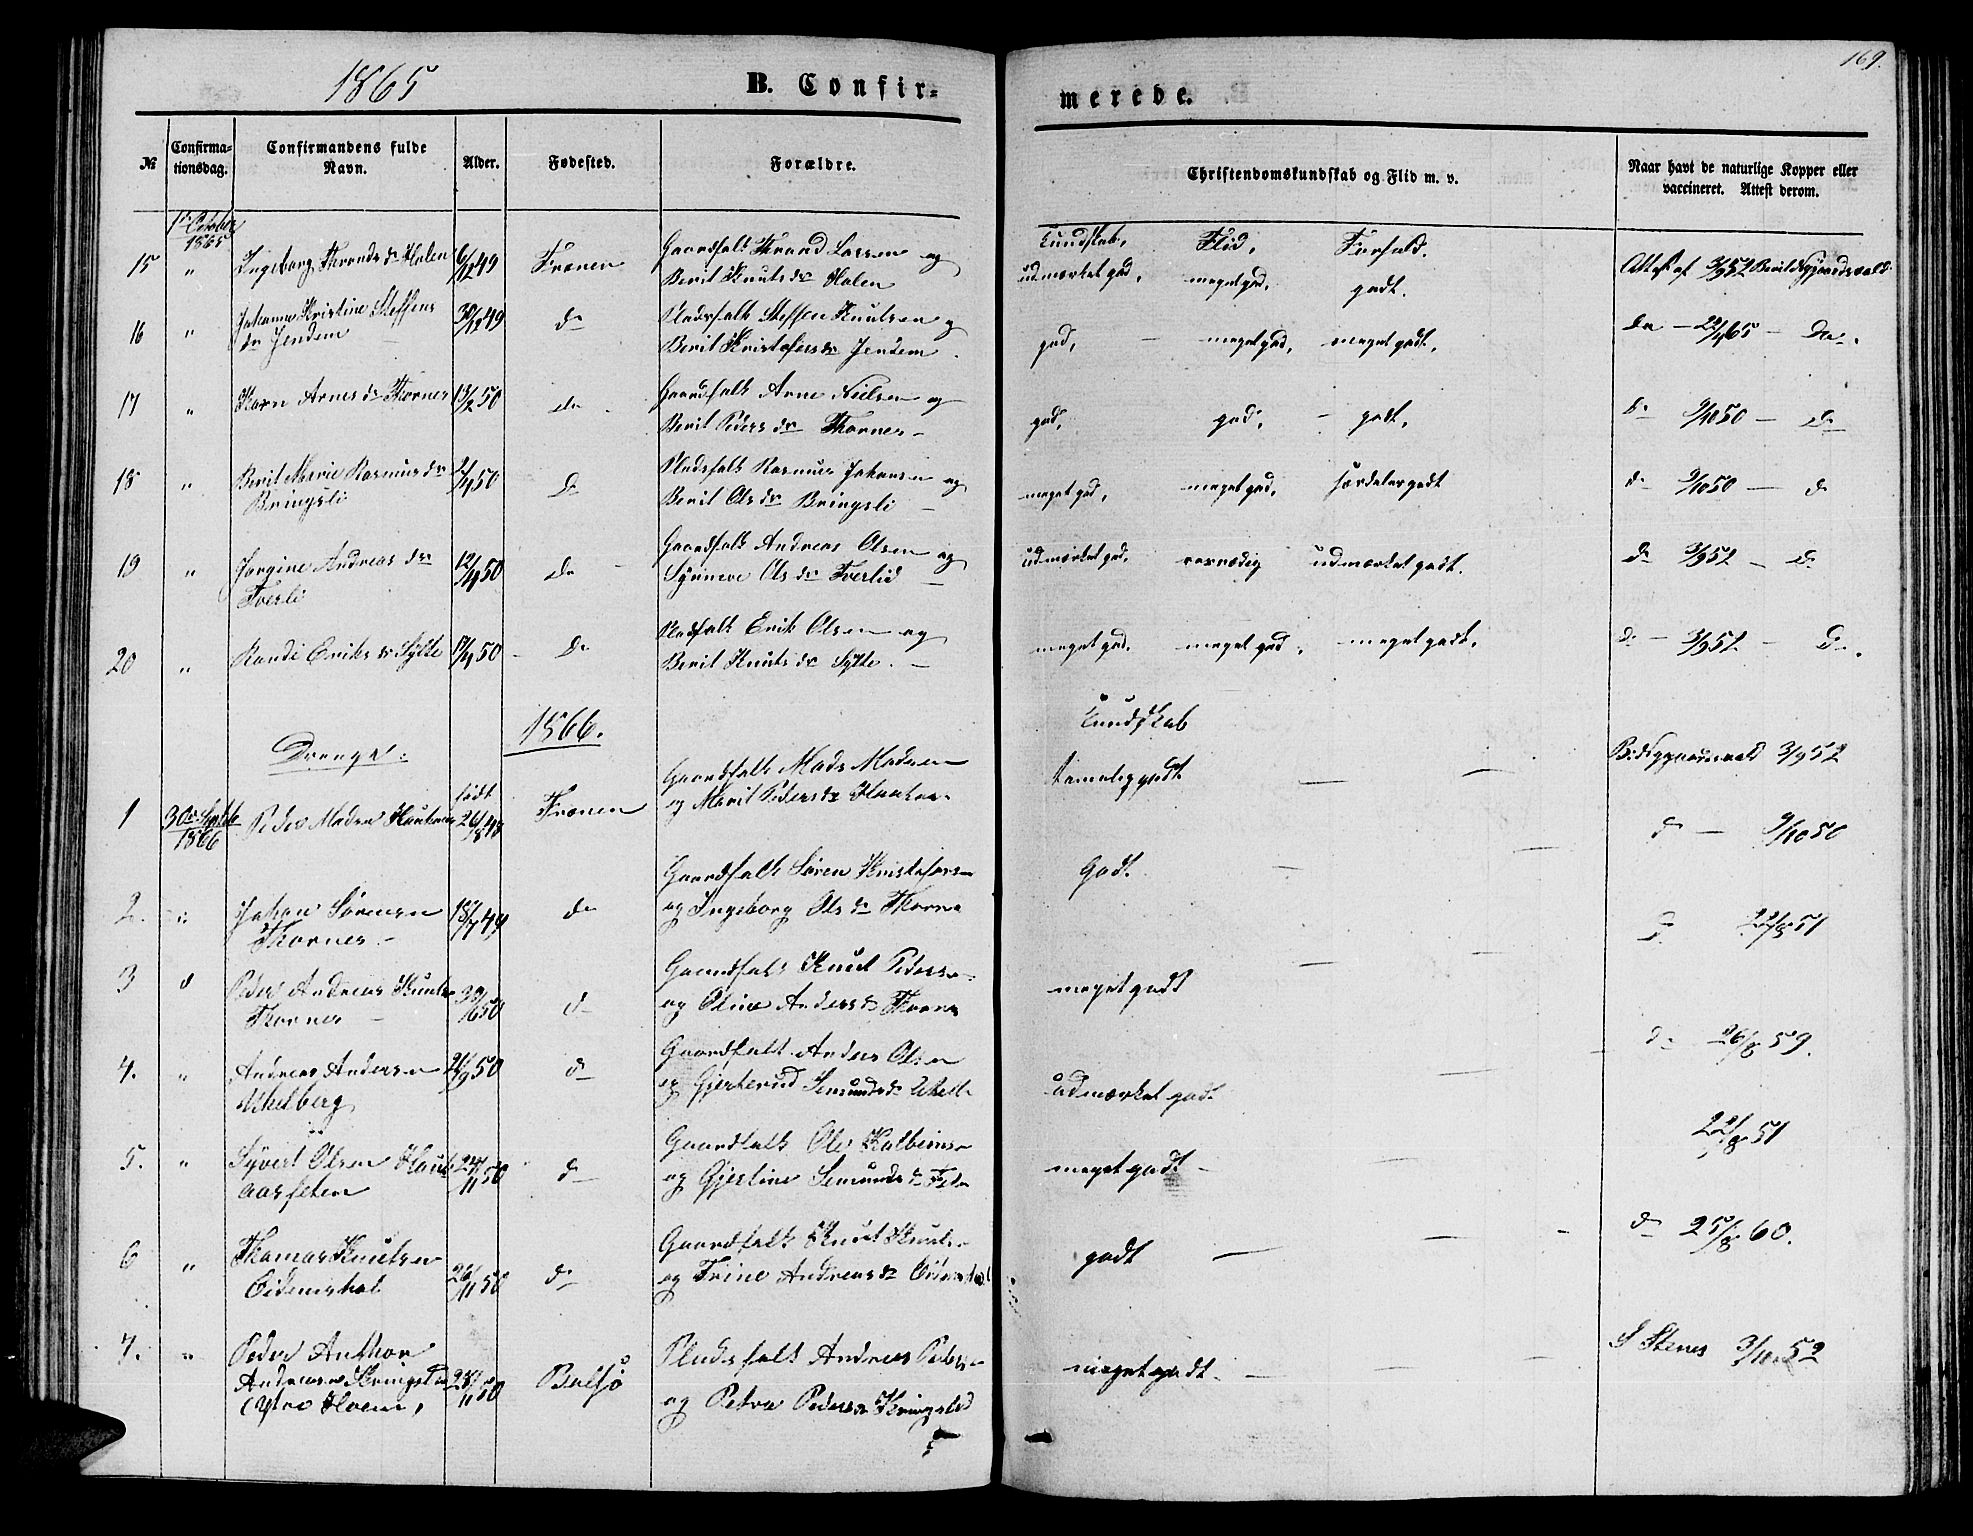 1865
B. Confir=
merede.
169.
№
Confirma-
tionsdag.
Confirmandens fulde
Navn.
Alder.
Fødested.
Forældre.
Christendomskundskab og Flid m. v.
Naar havt de naturlige Kopper eller
vaccineret. Attest derom.
1ste October
1865
Kundskab, Flid, Forhold.
15 " Ingeborg Thronds dr Halen 6/12 49 Frænen Gaardfolk Thrond Larsen og
Berit Knuts dr Halen
udmærket god, meget god, godt.
Attest af 3/9 52
16 " Johanna Kristine Steffens
dr Jendem
30/12 49 do Pladsfolk Steffen Knutsen og
Berit Kristofers dr Jendem.
god, — meget god, meget godt, do — 22/4 65 — do.
17 " Karn Arnes dr Thornes 13/2 50 do Gaardfolk Arne Nielsen og
Berit Peders dr Thornes —
god, god, — godt, do 9/10 50 — do
18 " Berit Marie Rasmus dr
Bringsli
2/4 50 do Pladsfolk Rasmus Johansen og
Berit Ols dr Bringsli —
meget god, meget god, særdeles godt do 9/10 50 — do
19 " Jorgine Andreas dr
Tverli
12/4 50 do Gaardfolk Andreas Olsen og
Synneve Ols dr Tverlid —
udmærket god, udmærket godt. do 3/9 52 — do
20 " Randi Eriks dr Sylte 17/4 50 — do Pladsfolk Erik Olsen og
Berit Knuts dr Sylte. —
meget god. meget god, meget godt, do — 3/9 51 — do.
1866.
Kundskab
Drenge:
født
1 30te Septb
1866
Peder Madsen 26/8 48 Frænen Gaardfolk Mads Madsen
og Marit Peders dr
temelig godt — — 3/9 52
2. " Johan Sørensen
Thornes —
18/7 49 do Gaardfolk Søren Kristofersen
og Ingeborg Ols dr Thornes
Godt. — — do — 9/10 50
3 " Peder Andreas Knutsen
Thornes —
30/6 50 do Gaardfolk Knut Pedersen
og Oline Anders dr Thornes
meget godt — — do 22/8 51
4. " Andreas Andersen
21/9 50 do Gaardfolk Anders Olsen
og Gjerterud Semunds dr
udmærket godt — do 26/8 59.
5. " Syvert Olsen
24/11 50 do Gaardfolk Ole Kolbeinsen
og Gjertine Semunds dr
meget godt — 22/8 51
6 " Thomas Knutsen
26/11 50 do Gaardfolk Knut Knutsen
og Trine Andreas dr
godt — — — do 25/8 60.
7. " Peder Anthon
Andreasen Kringstad
Bolsø Pladsfolk Andreas Pedersen
og Petra Peders dr Kringstad
meget godt. — — — S Stenes 3/10 52